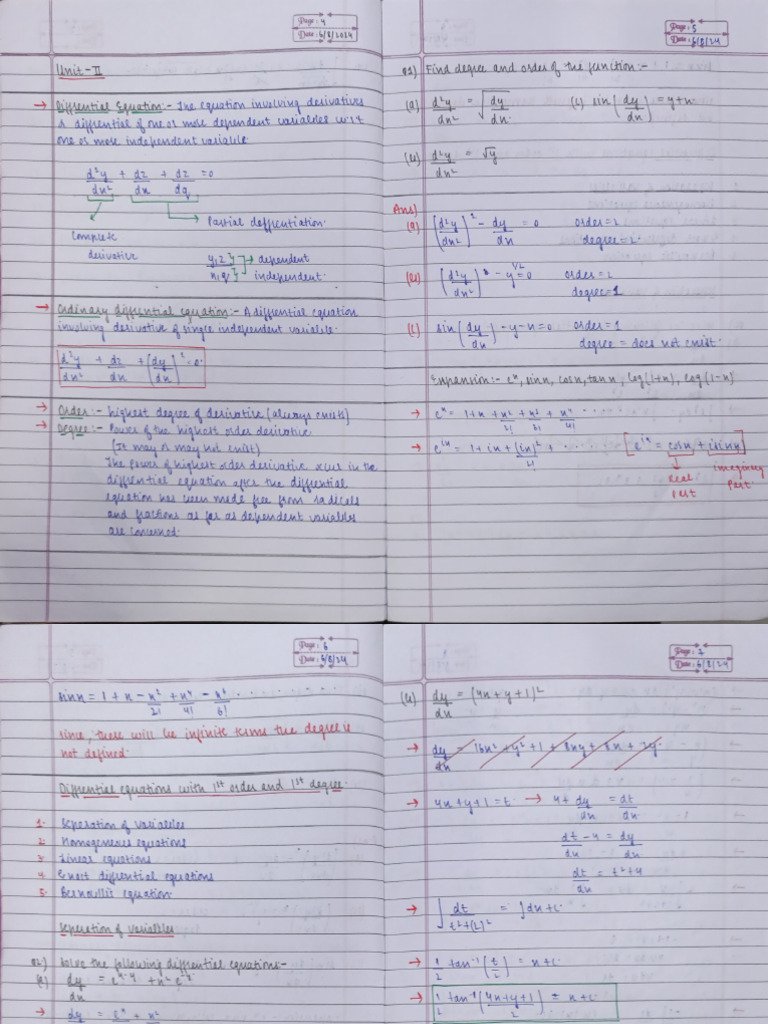 Page: 4
Date: 5/8/2024
Unit-II
→ Differential Equation:- The equation involving derivatives
& differential of one or more dependent variables w.r.t
one or more independent variable
d²y/dx² + dz/dx + dz/dq = 0
Partial deffrentiation.
Complete
derivative
y,z } → dependent
x,q } independent
→ Ordinary diffrential equation:- A diffrential equation
involving derivative of single independent variable.
d²y/dx² + dz/dx + (dy/dx)² = 0.
→ Order:- highest degree of derivative (always exists)
→ Degree:- Power of the highest order derivative
(It may or may not exist)
The power of highest order derivative occur in the
diffrential equation after the diffrential
equation has been made free from radicals
and fractions as far as dependent variables
are concerned.
Page: 5
Date: 6/8/24
Q1) Find degree and order of the function:-
d²y/dx² = √(dy/dx) sin(dy/dx) = y+x.
d²y/dx² = √y
Ans)
(a) [d²y/dx²]² - dy/dx = 0 order=2
degree=2.
(d²y/dx²) - y^1/2 = 0 order=2
degree=1
sin(dy/dx) - y - x = 0 order=1
degree = does not exist.
Expansion:- eˣ, sinx, cosx, tanx, log(1+x), log(1-x)
→ eˣ = 1+x+x²/2!+x³/3!+x⁴/4! ......
→ e^ix = 1+ix+(ix)²/2! + ...... [e^ix = cosx + isinx]
Real part imaginary part.
Page: 6
Date: 6/8/24
sinx = 1+x-x²/2!+x⁴/4!-x⁶/6! ......
since, there will be infinite terms the degree is
not defined.
Diffrential equations with 1st order and 1st degree.
1. Seperation of variables
2. Homogeneous equations
3. Linear equations
4. Exact diffrential equations
5. Bernoullis equation.
Seperation of variables
Q2) Solve the following diffrential equations:-
dy/dx = e^x-y + x²e^-y
→ dy = eˣ + x²
Page: 7
Date: 6/8/24
dy/dx = (4x+y+1)²
→ dy/dx = 16x² + y² + 1 + 8xy + 8x + 2y.
→ 4x+y+1 = t. → 4 + dy/dx = dt/dx.
dt/dx - 4 = dy/dx
dt/dx = t²+4
→ ∫ dt/(t²+(2)²) = ∫dx+c.
→ 1/2 tan⁻¹(t/2) = x+c.
→ 1/2 tan⁻¹((4x+y+1)/2) = x+c.